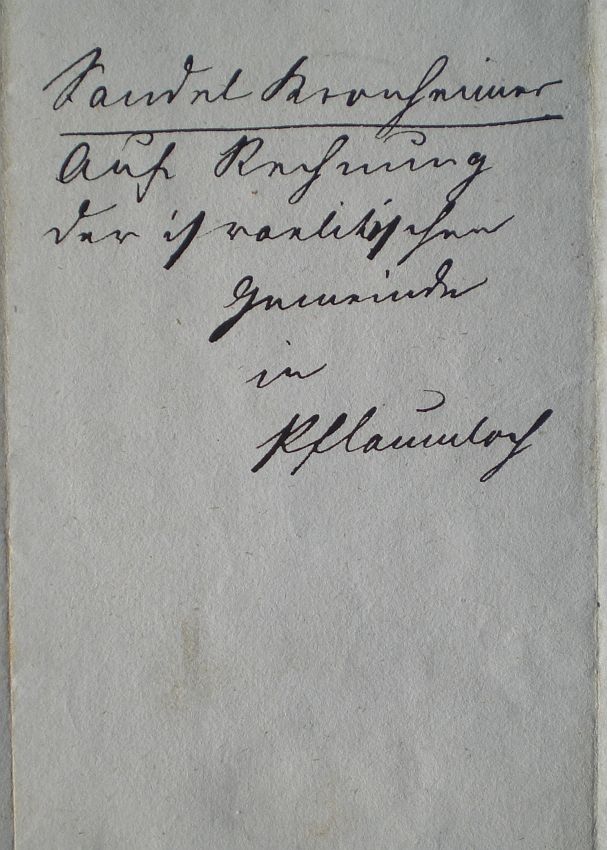 Sandel Kronheimer
Auf Rechnung
der israelitischen
Gemeinde
in
Pflaumloch